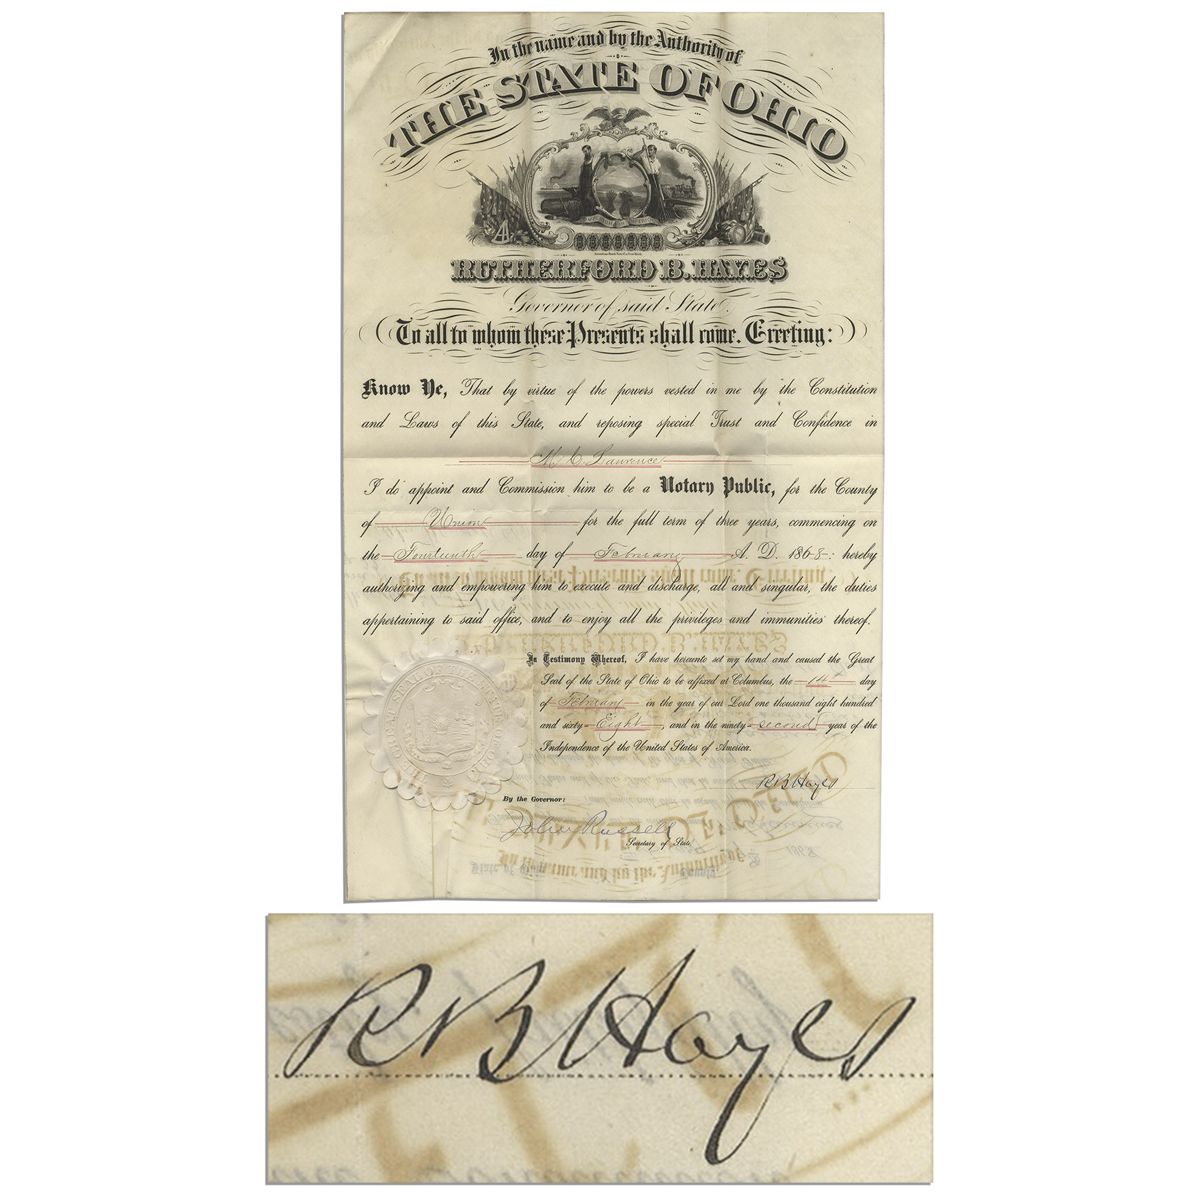 In the name and by the Authority of
THE STATE OF OHIO
RUTHERFORD B. HAYES
Governor of said State.
To all to whom these Presents shall come, Greeting:
Know Ye, That by virtue of the powers vested in me by the Constitution
and Laws of this State, and reposing special Trust and Confidence in
M. C. Lawrence
I do appoint and Commission him to be a Notary Public, for the County
of Union for the full term of three years, commencing on
the Fourteenth day of February A. D. 1868: hereby
authorizing and empowering him to execute and discharge, all and singular, the duties
appertaining to said office, and to enjoy all the privileges and immunities thereof.
In Testimony Whereof, I have hereunto set my hand and caused the Great
Seal of the State of Ohio to be affixed at Columbus, the 14th day
of February in the year of our Lord one thousand eight hundred
and sixty-Eight, and in the ninety-second year of the
Independence of the United States of America.
R B Hayes
By the Governor:
John Russell
Secretary of State
R B Hayes